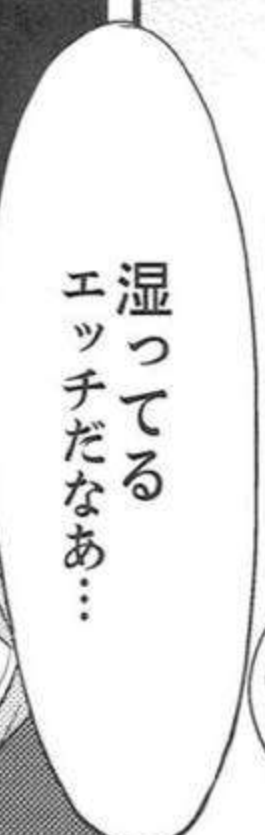 湿ってる
エッチだなあ…